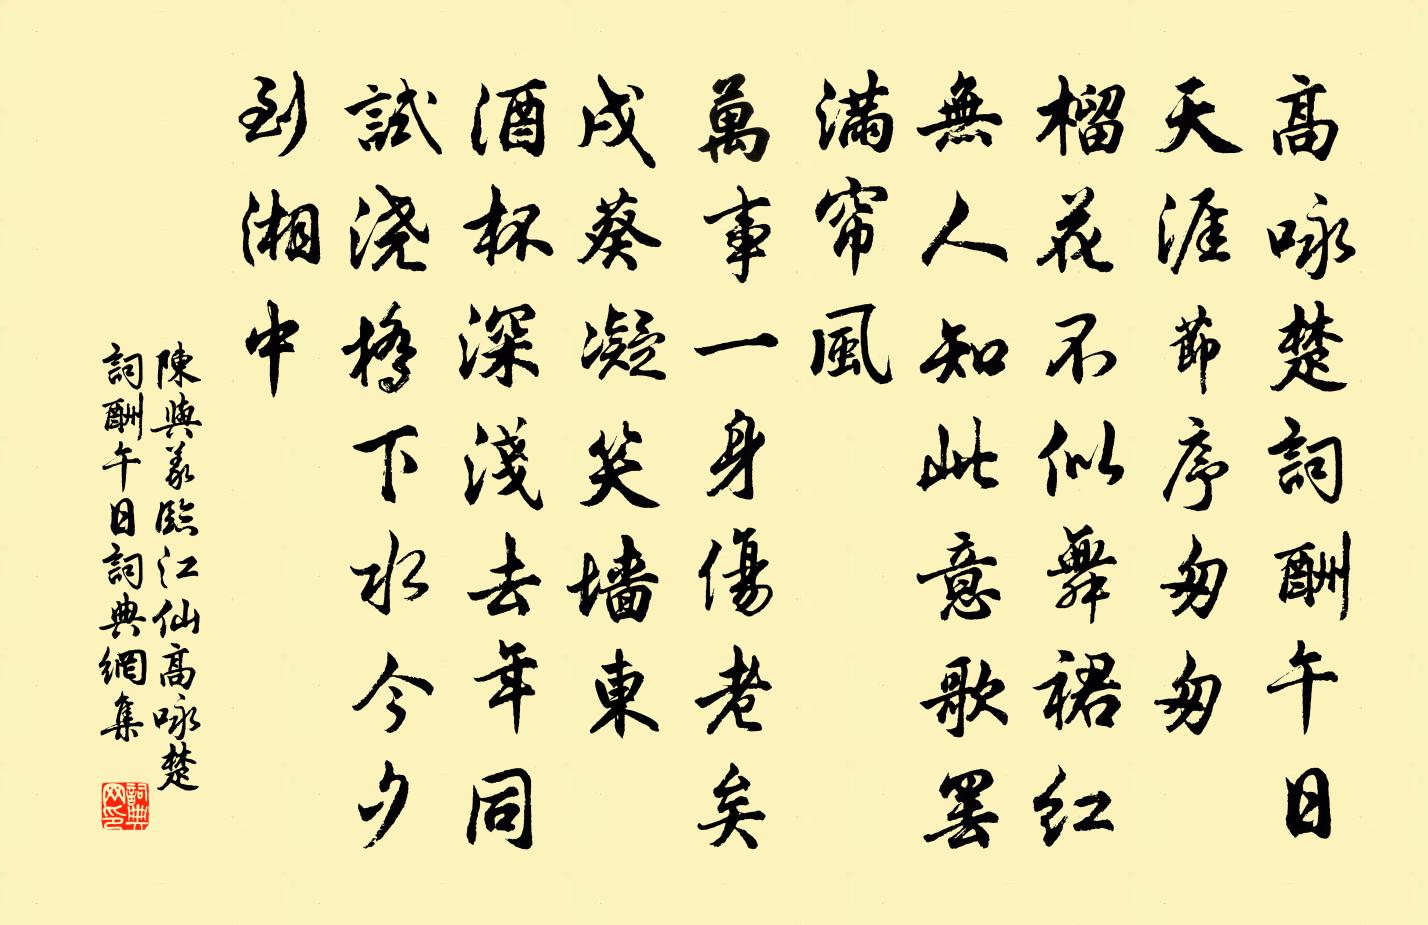 高咏楚詞酬午日
天涯節序匆匆
榴花不似舞裙紅
無人知此意歌罢
滿帘風
萬事一身傷老矣
戎葵凝笑墙東
酒杯深淺去年同
試浇橋下水今夕
到湘中
陳與義臨江仙高咏楚
詞酬午日詞典網集
詞典
网印